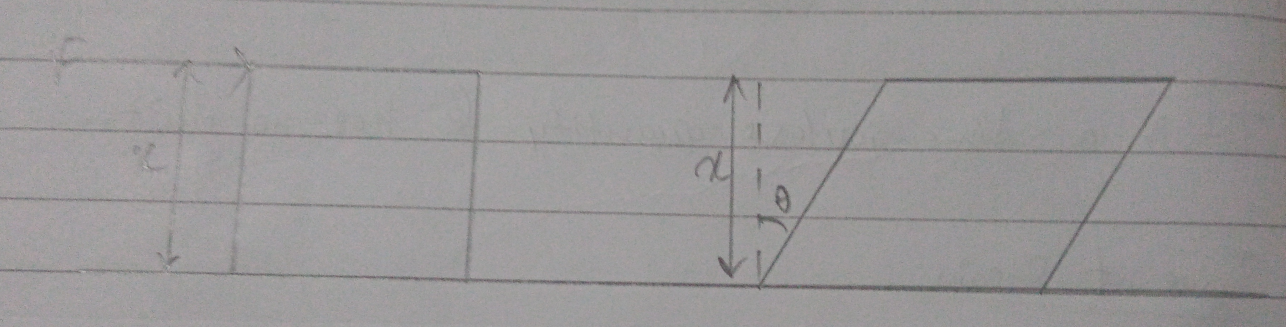 F
x
x
θ